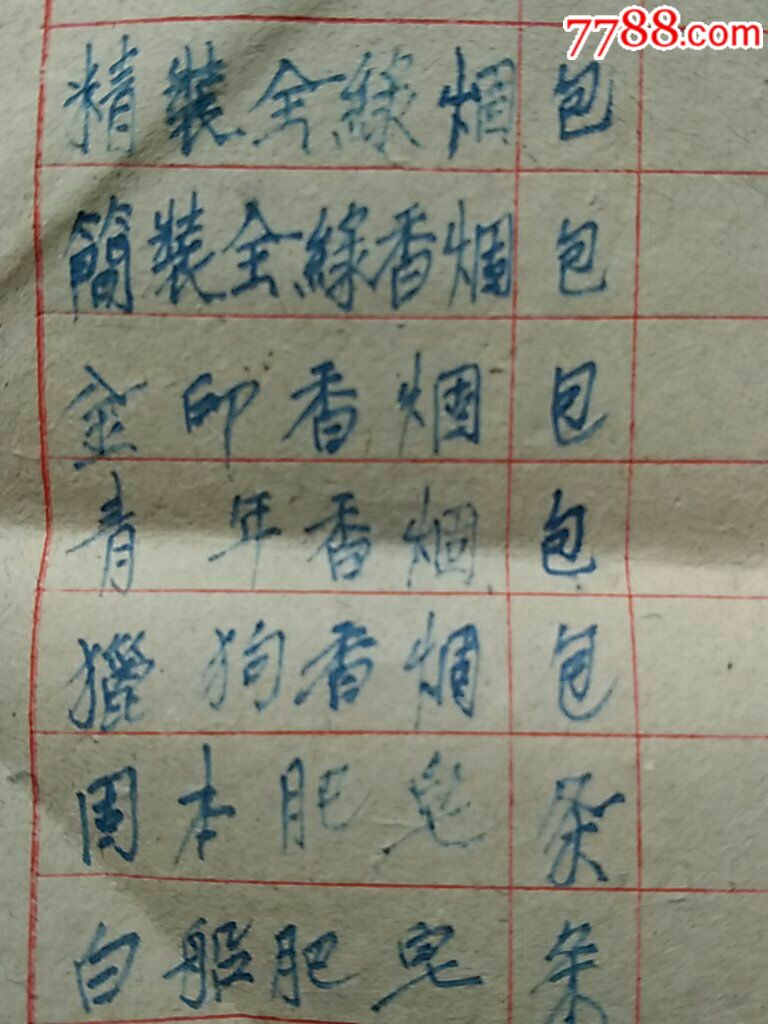 7788.com
精裝全綠烟 包
簡裝全綠香烟 包
金印香烟 包
青年香烟 包
獵狗香烟 包
固本肥皂 条
白船肥皂 条